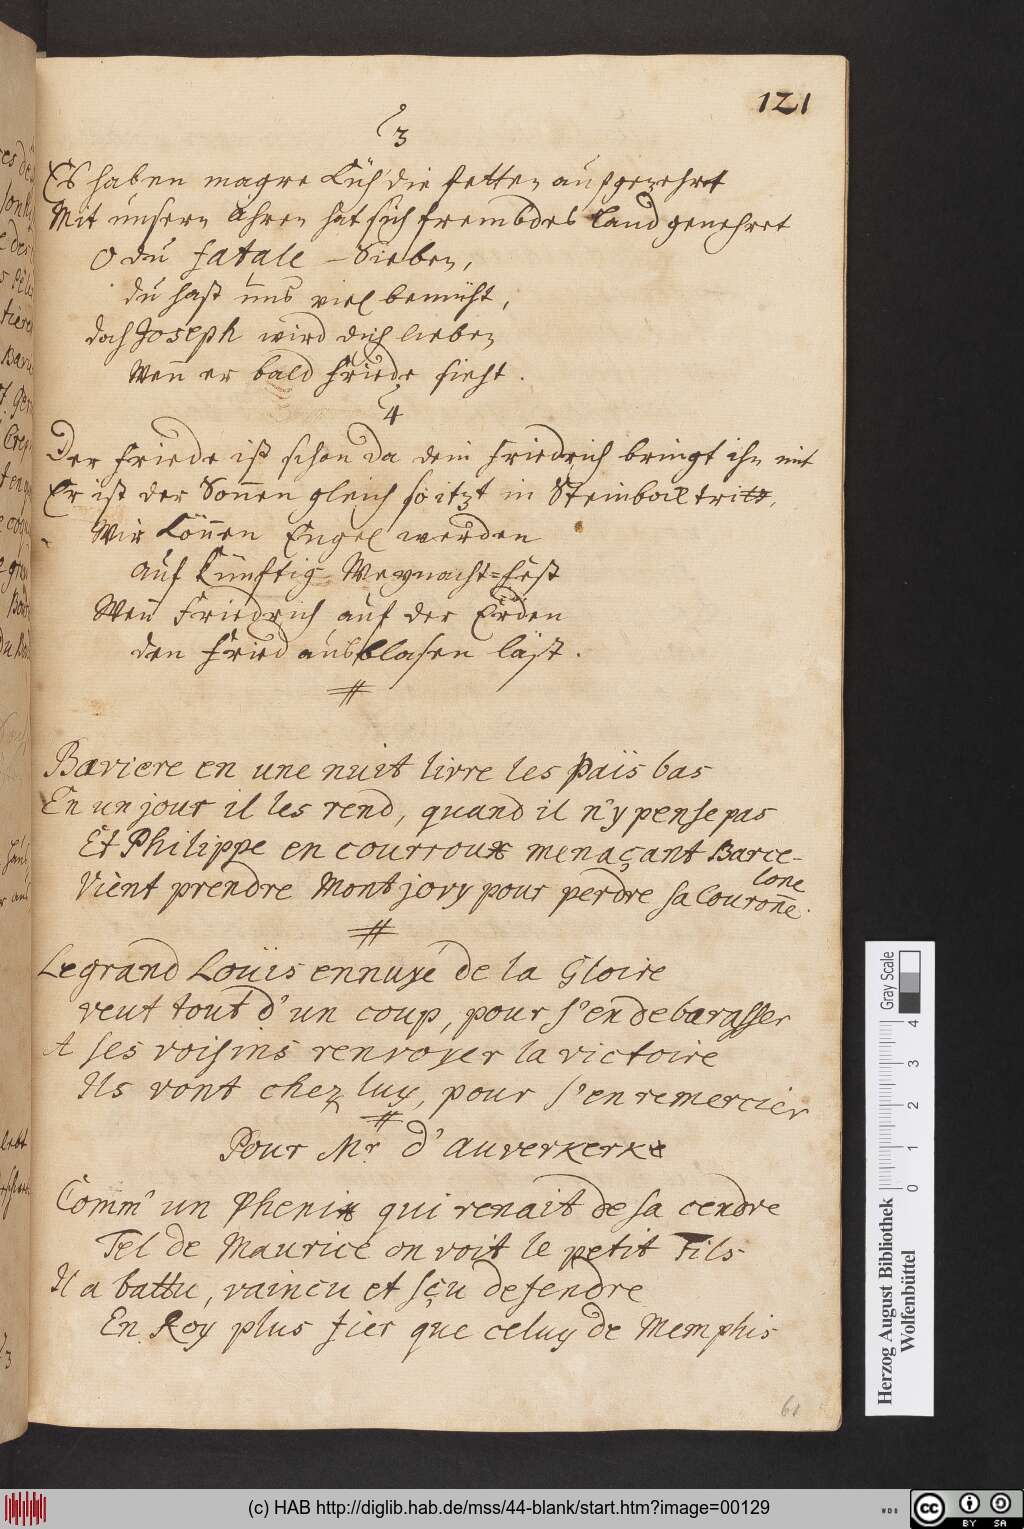 121
3
Es haben magre Küh die fetten aufgezehrt
Mit unsern Ähren hat sich frembdes Land genehret
O du fatale Sieben,
du hast uns viel bemüht,
doch Joseph wird dich lieben
Wenn er bald Friede sieht.
4
Der Friede ist schon da dein Friedrich bringt ihn mit
Er ist der Sonnen gleich so itzt in Steinbock tritt,
Wir können Engel werden
Auf künftig Weynacht=Fest
Wenn Friedrich auf der Erden
den Fried ausblasen läst.
Baviere en une nuit livre les Païs bas
En un jour il les rend, quand il n'y pense pas
Et Philippe en courroux menaçant Barce-
lone
Vient prendre Montjovy pour perdre sa Couronne.
Le grand Loüis ennuyé de la Gloire
veut tout d'un coup, pour s'en debarasser
A ses voisins renvoyer la victoire
Ils vont chez luy, pour s'en remercier
Pour Mr. d'Auverkerke
Comm' un Phenix qui renait de sa cendre
Tel de Maurice on voit le petit Fils
Il a battu, vaincu et sçu defendre
En Roy plus fier que celuy de Memphis
61
Herzog August Bibliothek
Wolfenbüttel
Gray Scale
0 1 2 3 4
(c) HAB http://diglib.hab.de/mss/44-blank/start.htm?image=00129
WDB
cc BY SA